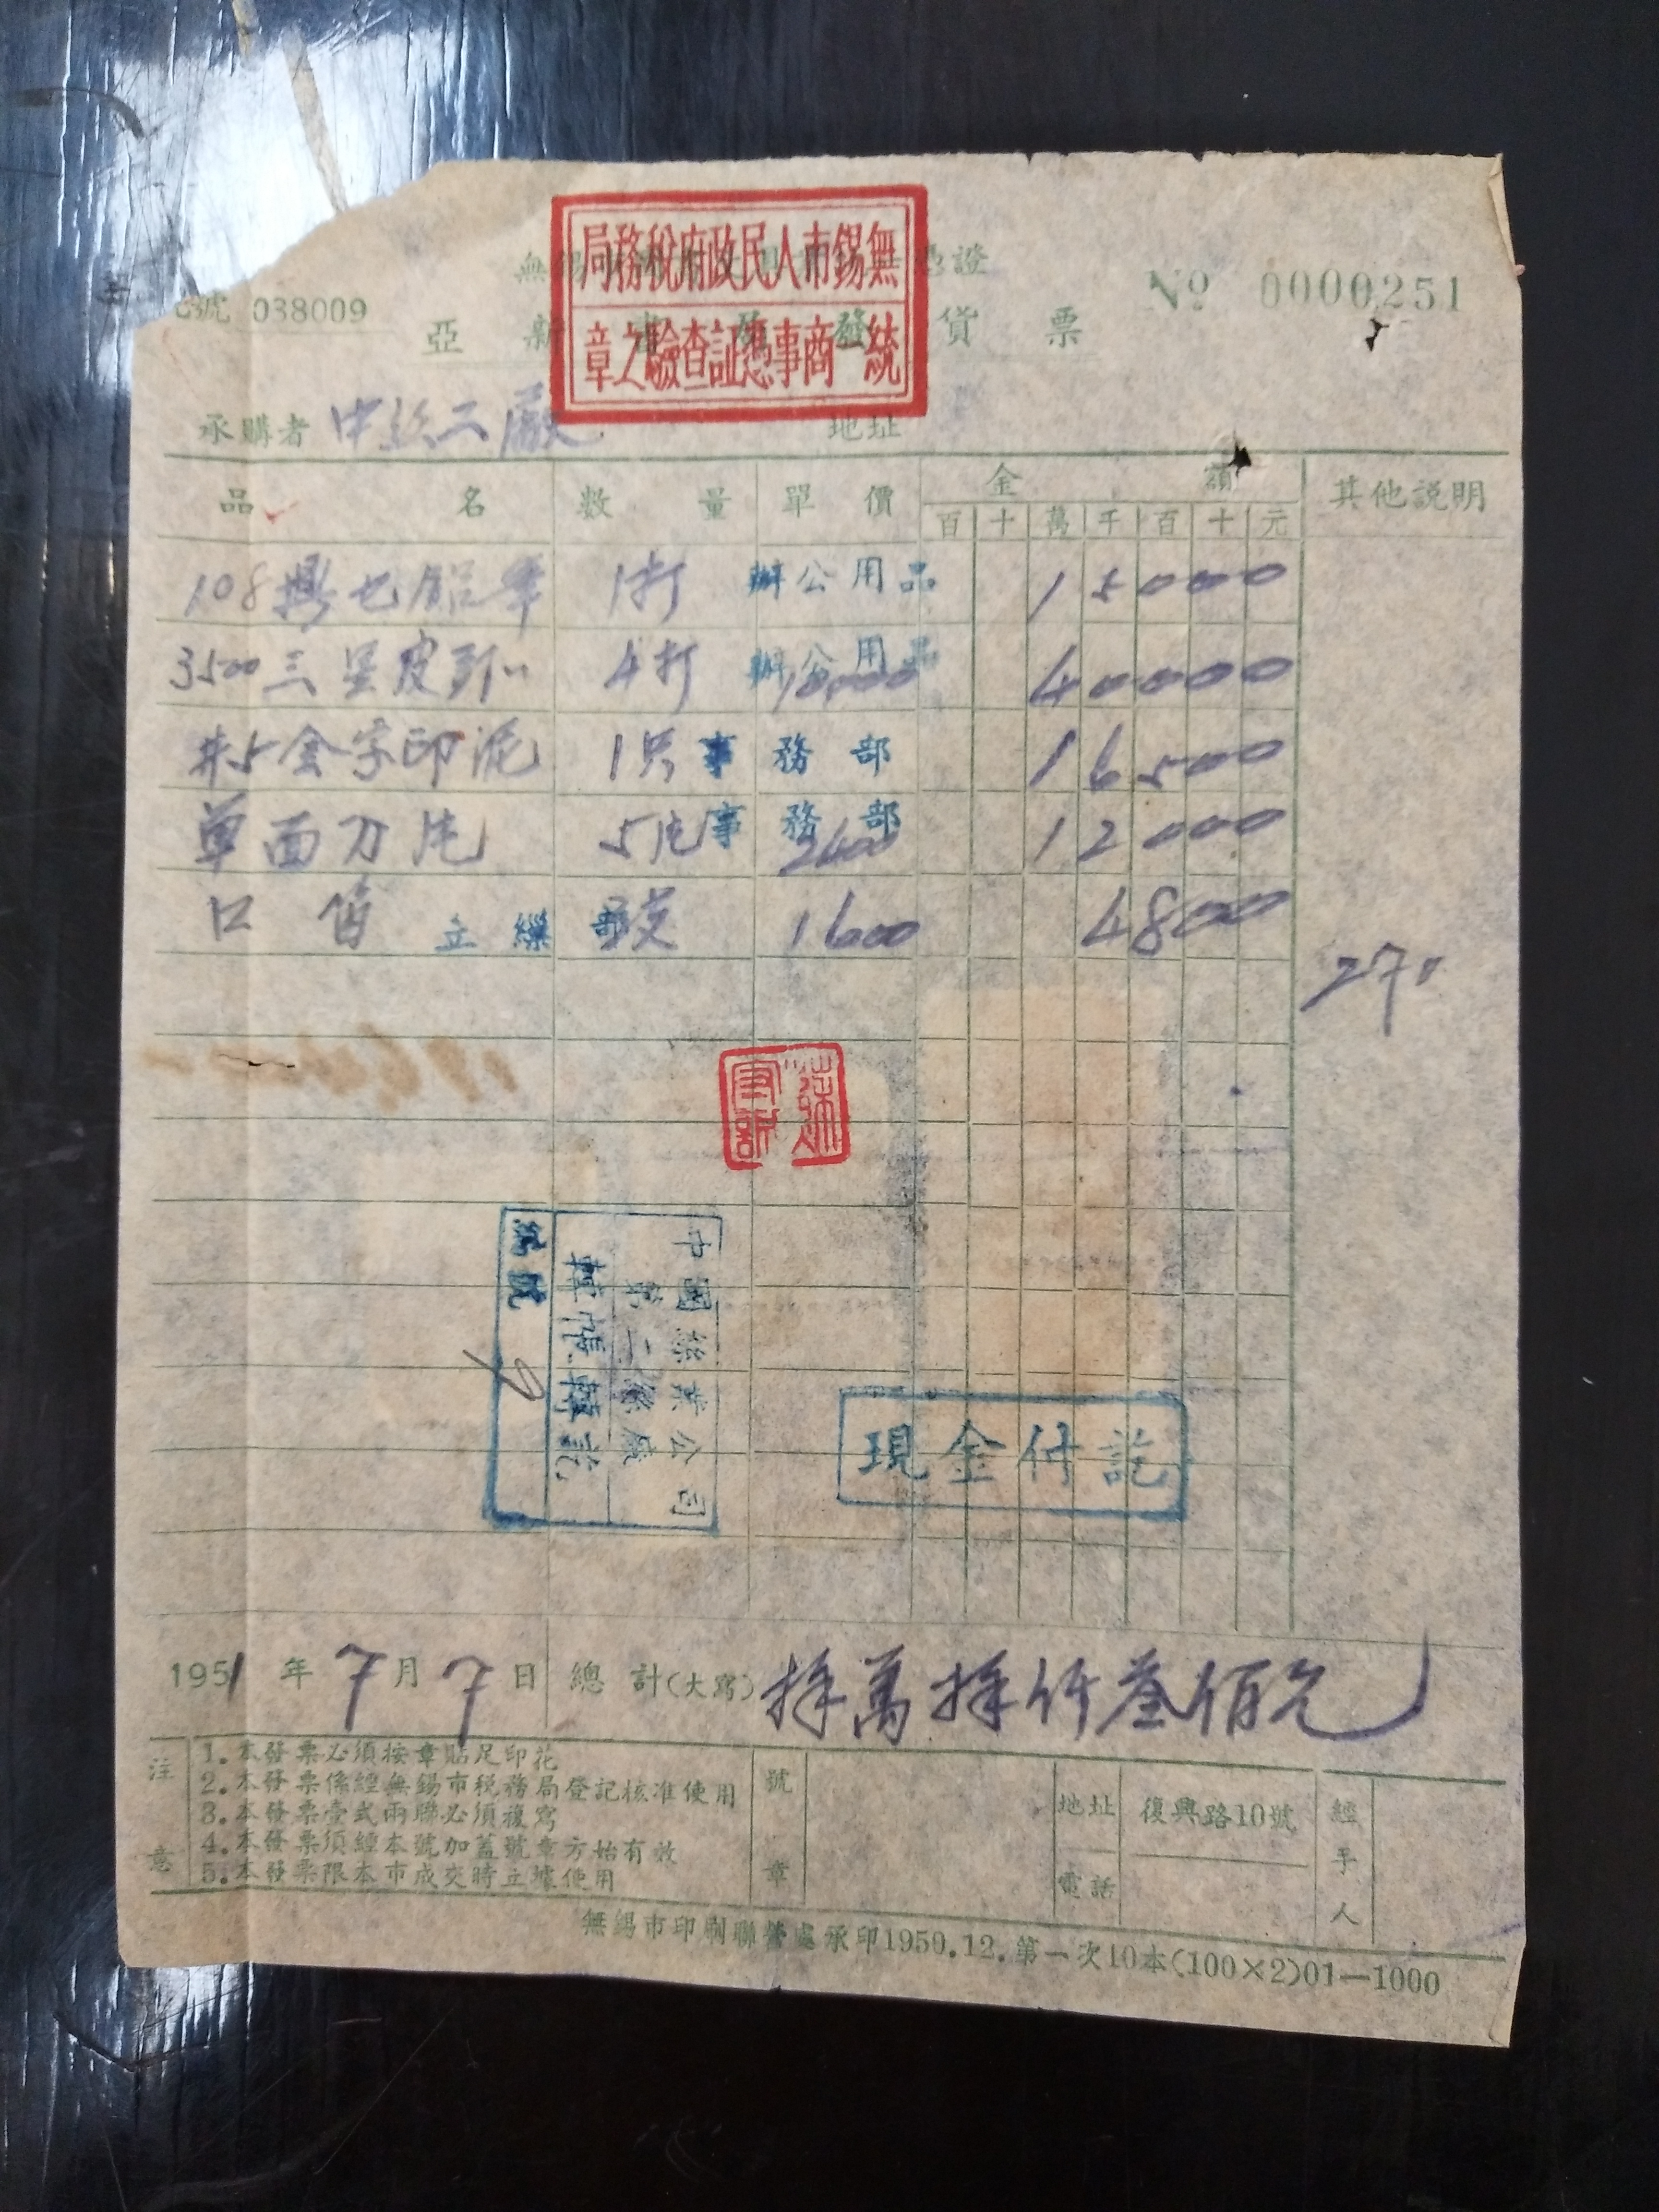 無錫市人民政府稅務局
統一商事憑証查驗之章
號 038009
No 0000251
亞新書店發貨票
承購者 中絲二廠 地址
品名 數量 單價 金額 其他説明
百 十 萬 千 百 十 元
108 鉛筆 1打 辦公用品 15000
3500 三星皮 4打 辦公用品 10,000 40000
#5 金字印泥 1只 事務部 16500
单面刀片 5片 事務部 2400 12000
口笛 立繅部 3支 1600 4800
270
中國絲業公司
第二絲廠
號
現金付訖
1951年7月7日 總計(大寫) 捌萬捌仟叁佰元
注意
1.本發票必須按章貼足印花
2.本發票係經無錫市稅務局登記核准使用
3.本發票壹式兩聯必須複寫
4.本發票須經本號加蓋號章方始有效
5.本發票限本市成交時立據使用
號章
地址 復興路10號
電話
經手人
無錫市印刷聯營處承印1950.12.第一次10本(100×2)01—1000